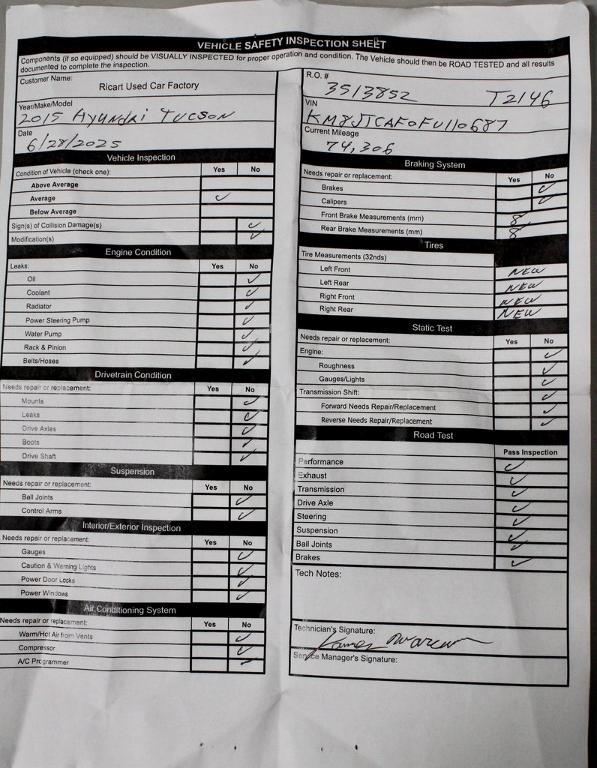 VEHICLE SAFETY INSPECTION SHEET
Components (if so equipped) should be VISUALLY INSPECTED for proper operation and condition. The Vehicle should then be ROAD TESTED and all results
documented to complete the inspection.
Customer Name:
Ricart Used Car Factory
Year/Make/Model
2015 Hyundai Tucson
Date
6/28/2025
R.O. #
3513852 T2146
VIN
KM8JTCAF0FU110687
Current Mileage
74,306
Vehicle Inspection
Condition of Vehicle (check one): Yes No
Above Average
Average ✓
Below Average
Sign(s) of Collision Damage(s) ✓
Modification(s) ✓
Engine Condition
Leaks: Yes No
Oil ✓
Coolant ✓
Radiator ✓
Power Steering Pump ✓
Water Pump ✓
Rack & Pinion ✓
Belts/Hoses ✓
Drivetrain Condition
Needs repair or replacement: Yes No
Mounts ✓
Leaks ✓
Drive Axles ✓
Boots ✓
Drive Shaft ✓
Suspension
Needs repair or replacement: Yes No
Ball Joints ✓
Control Arms ✓
Interior/Exterior Inspection
Needs repair or replacement: Yes No
Gauges ✓
Caution & Warning Lights ✓
Power Door Locks ✓
Power Windows ✓
Air Conditioning System
Needs repair or replacement: Yes No
Warm/Hot Air from Vents ✓
Compressor ✓
A/C Programmer ✓
Braking System
Needs repair or replacement: Yes No
Brakes ✓
Calipers ✓
Front Brake Measurements (mm) 8
Rear Brake Measurements (mm) 8
Tires
Tire Measurements (32nds)
Left Front NEW
Left Rear NEW
Right Front NEW
Right Rear NEW
Static Test
Needs repair or replacement: Yes No
Engine: ✓
Roughness ✓
Gauges/Lights ✓
Transmission Shift: ✓
Forward Needs Repair/Replacement ✓
Reverse Needs Repair/Replacement ✓
Road Test
Pass Inspection
Performance ✓
Exhaust ✓
Transmission ✓
Drive Axle ✓
Steering ✓
Suspension ✓
Ball Joints ✓
Brakes ✓
Tech Notes:
Technician's Signature:
Service Manager's Signature: